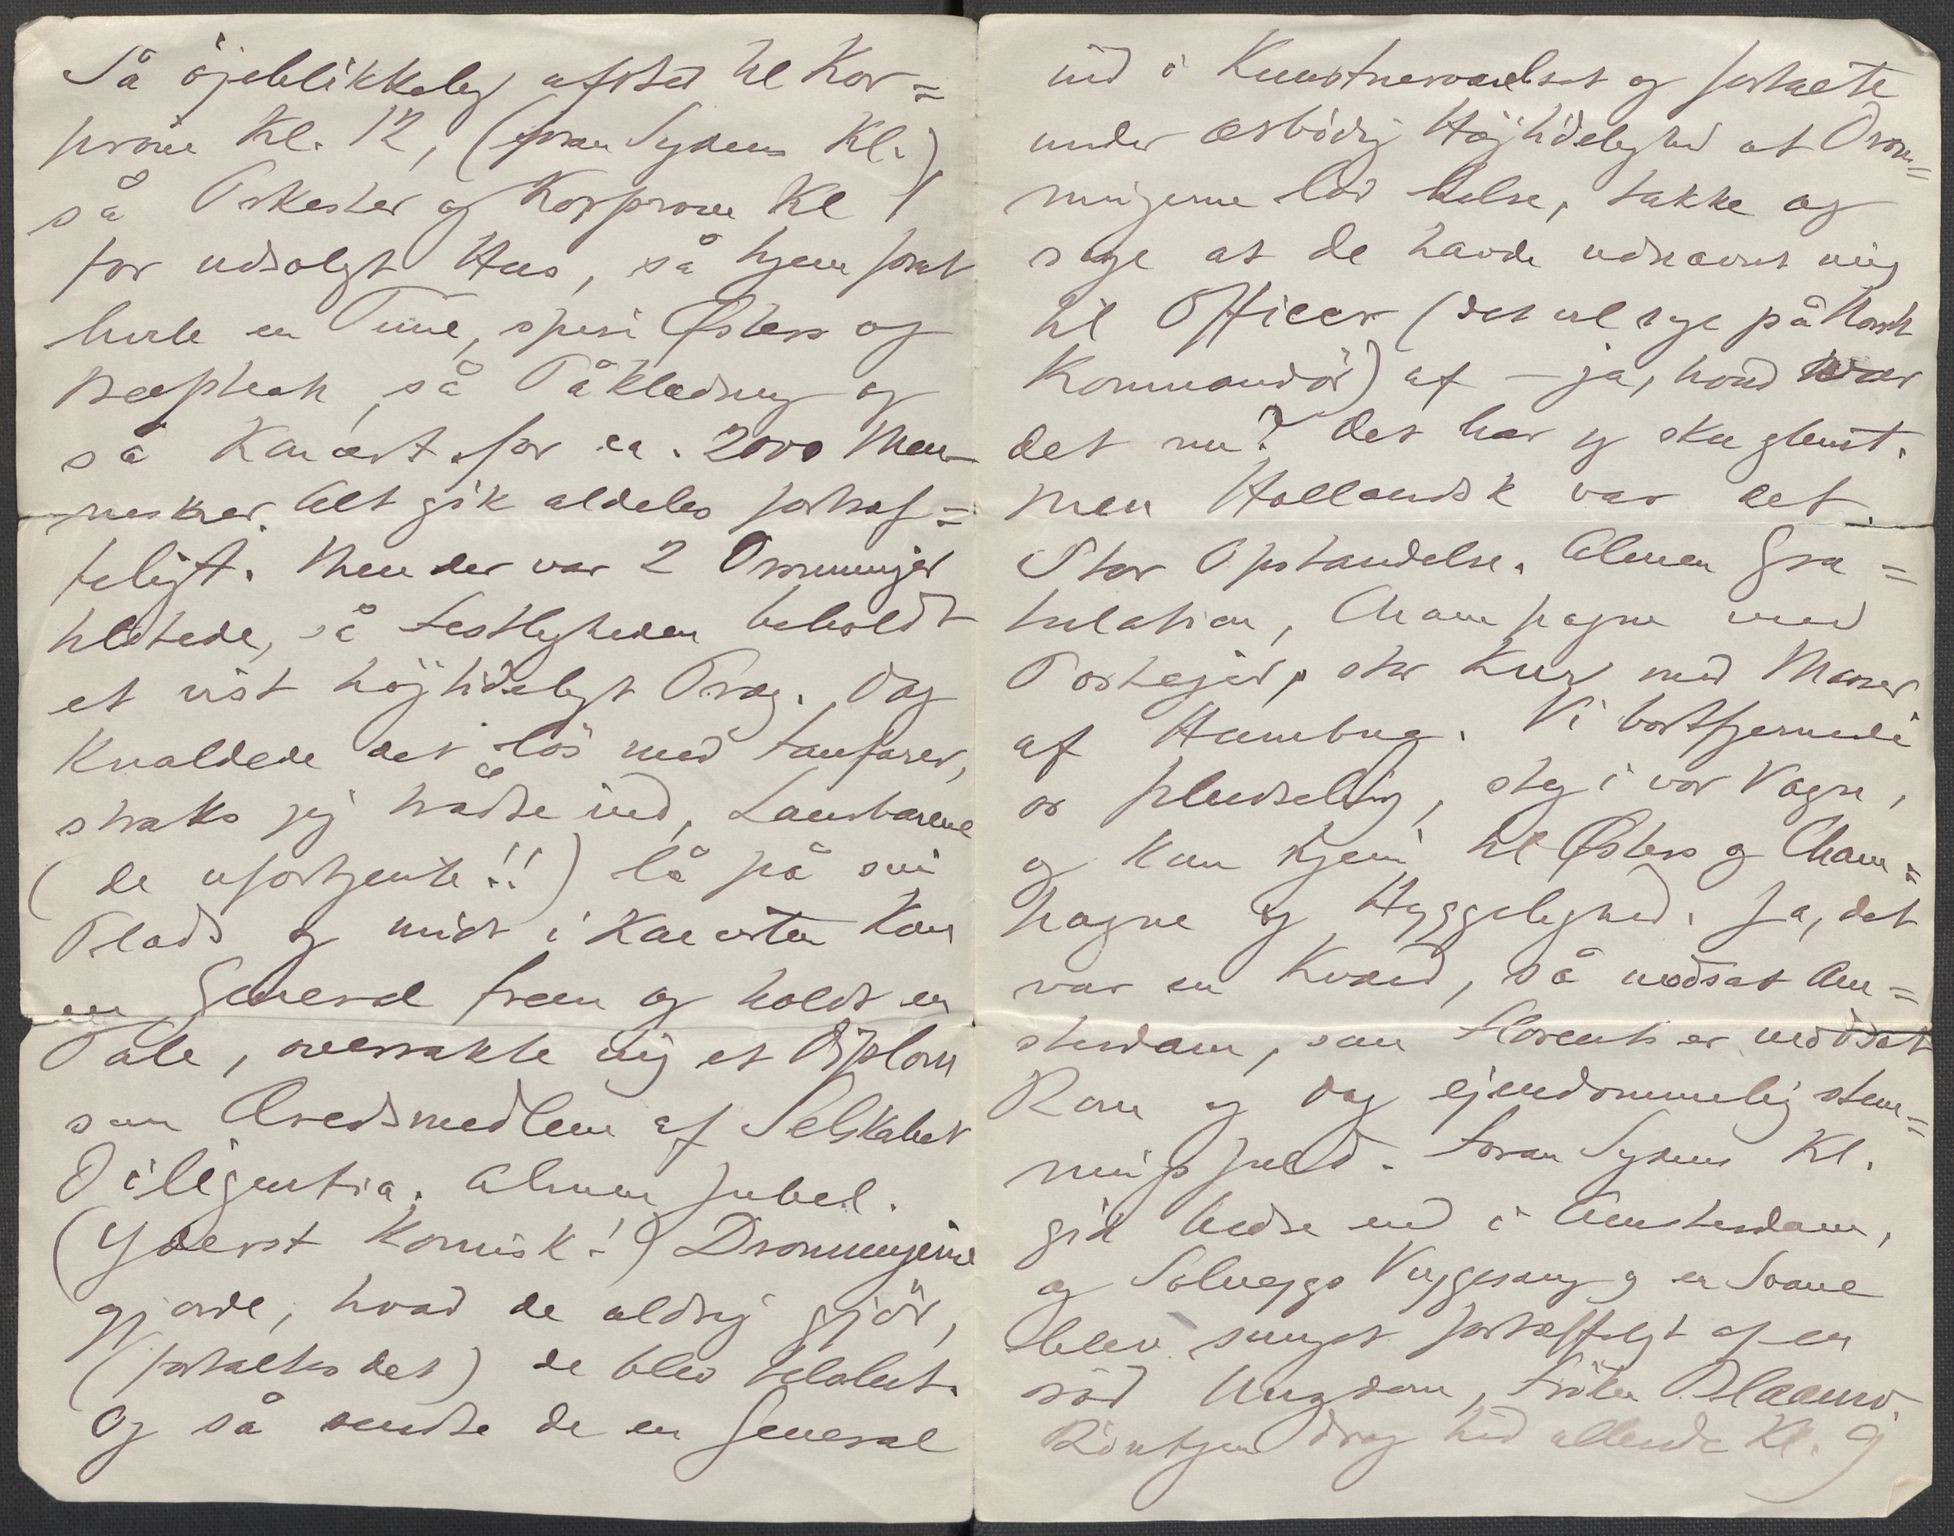 Så öjeblikkelig afsted til Kor=
prøve Kl. 12, (foran Sydens Kl.)
så Orkester og Korprøve Kl 1
for udsolgt Hus, så hjem forat
hvile en Time, spise Østers og
Beefsteak, så Påklædning og
så Koncert for ca. 2000 Men-
nesker. Alt gik aldeles fortræf=
feligt. Men der var 2 Dronninger
tilstede, så Festligheden beholdt
et vist höjtideligt Præg. Dog
knaldede det lös med Fanfarer,
straks jeg trådte ind, Laurbærene
(de ufortjente!!) lå på sin
Plads og midt i Koncerten kom
en General frem og holdt en
Tale, overrakte mig et Diplom
som Æresmedlem af Selskabet
Diligentia. Almen Jubel.
(Yderst komisk!) Dronningerne
gjorde, hvad de aldrig gjör,
(fortaltes det) de blev tilslut.
Og så sendte de en General
ind i Kunstnerværelset og fortalte
under ærbödig Höjtidelighed at Dron=
ningerne lod hilse, takke og
sige at de havde udnævnt mig
til Officer (det vil sige på Norsk
Kommandör) af – ja, hvad var
det nu? Det har jeg sku glemt.
Men Hollandsk var det.
Stor Opstandelse. Almen Gra=
tulation, Champagne med
Portejer, stor Krug med Masser
af Humbug. Vi bortfjernede
os pludselig, steg i vor Vogn,
og kom hjem til Østers og Cham=
pagne og Hyggelighed. Ja, det
var en Kvæld, så modsat Am=
sterdam, som Florents er modsat
Rom og dog ejendommelig stem=
ningsfuld. Foran Sydens Kl.
gik bedre end i Amsterdam,
og Solvejgs Vuggesang og en Svane
blev sunget fortæffeligt af en
röd Ungdom, Fröken
Röntgen drog hid allerede Kl. 9